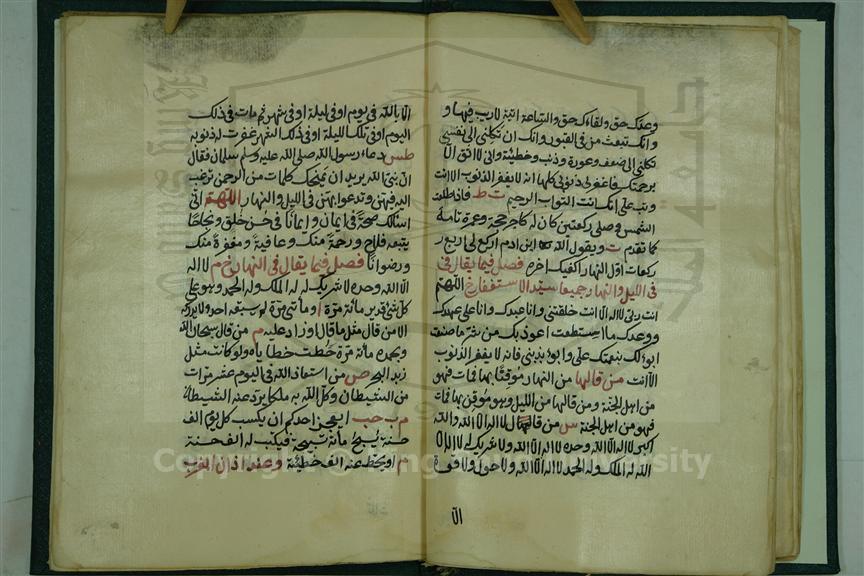 وعدك حق ولقاءك حق والساعة اتية لا ريب فيها و
وانك تبعث من في القبور وانك ان تكلني الى نفسي
تكلني الى ضعف وعورة وذنب وخطيئة واني لا اثق الا
برحمتك فاغفر لي ذنوبي كلها انه لا يغفر الذنوب الا انت
وتب علي انك انت التواب الرحيم ت ط فاذا طلعت
الشمس وصلى ركعتين كان له كاجر حجة وعمرة تامة
كما تقدم ت ويقول الله ابن ادم اركع لي اربع ر
ركعات اول النهار اكفيك اخره فصل فيما يقال في
في الليل والنهار جميعا سيد الاستغفار خ اللهم
انت ربي لا اله الا انت خلقتني وانا عبدك وانا على عهدك
ووعدك ما استطعت اعوذ بك من شر ما صنعت
ابوء لك بنعمتك علي وابوء بذنبي فانه لا يغفر الذنوب
الا انت من قالها من النهار موقنا بها فمات فهو
من اهل الجنة ومن قالها من الليل وهو موقن بها فمات
فهو من اهل الجنة س من قال لا اله الا الله والله
اكبر لا اله الا الله وحده لا اله الا الله ولا شريك له لا اله الا
الله له الملك وله الحمد لا اله الا الله ولا حول ولا قوة
الا
الا بالله في يوم او في ليلة او في شهر ثم مات في ذلك
اليوم او في تلك الليلة او في ذلك الشهر غفرت له ذنوبه
طس دعاء رسول الله صلى الله عليه وسلم سلمان فقال
ان نبي الله يريد ان يمنحك كلمات من الرحمن ترغب
اليه فيهن وتدعوا بهن في الليل والنهار اللهم اني
اسئلك صحة في ايمان وايمانا في حسن خلق ونجاحا
يتبعه فلاح ورحمة منك وعافية ومغفرة منك
ورضوانا فصل فيما يقال في النهار خ م لا اله
الا الله وحده لا شريك له له الملك وله الحمد وهو على
كل شئ قدير مائة مرة او مأتي مرة لم يسبقه احد ولا يدركه
الا من قال مثل ما قال او زاد عليه م من قال سبحان الله
وبحمده مائة مرة حطت خطاياه ولو كانت مثل
زبد البحر ص من استعاذ الله في اليوم عشر مرات
من الشيطان وكل الله به ملكا يرد عنه الشيطان
م ت حب ايعجز احدكم ان يكسب كل يوم الف
حسنة يسبح مائة تسبيحة فيكتب له الف حسنة
م او يحط عنه الف خطيئة وعند اذان المغرب